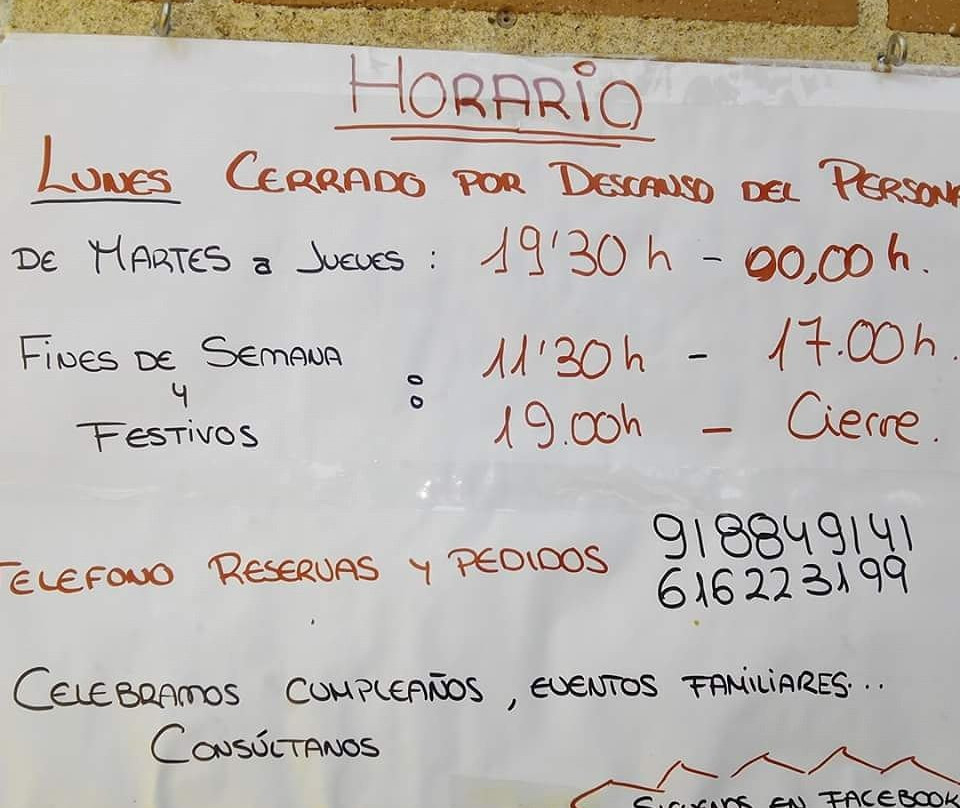 HORARiO
LUNES CERRADO POR DESCANSO DEL PERSONA
DE MARTES a JUEVES : 19'30 h - 00,00 h.
FINES DE SEMANA
y
FESTIVOS
: 11'30 h - 17.00 h.
19.00h - Cierre.
TELEFONO RESERVAS y PEDIDOS 918849141
616223199
CELEBRAMOS CUMPLEAÑOS , EVENTOS FAMILIARES...
CONSÚLTANOS
SIGUENOS EN FACEBOOK